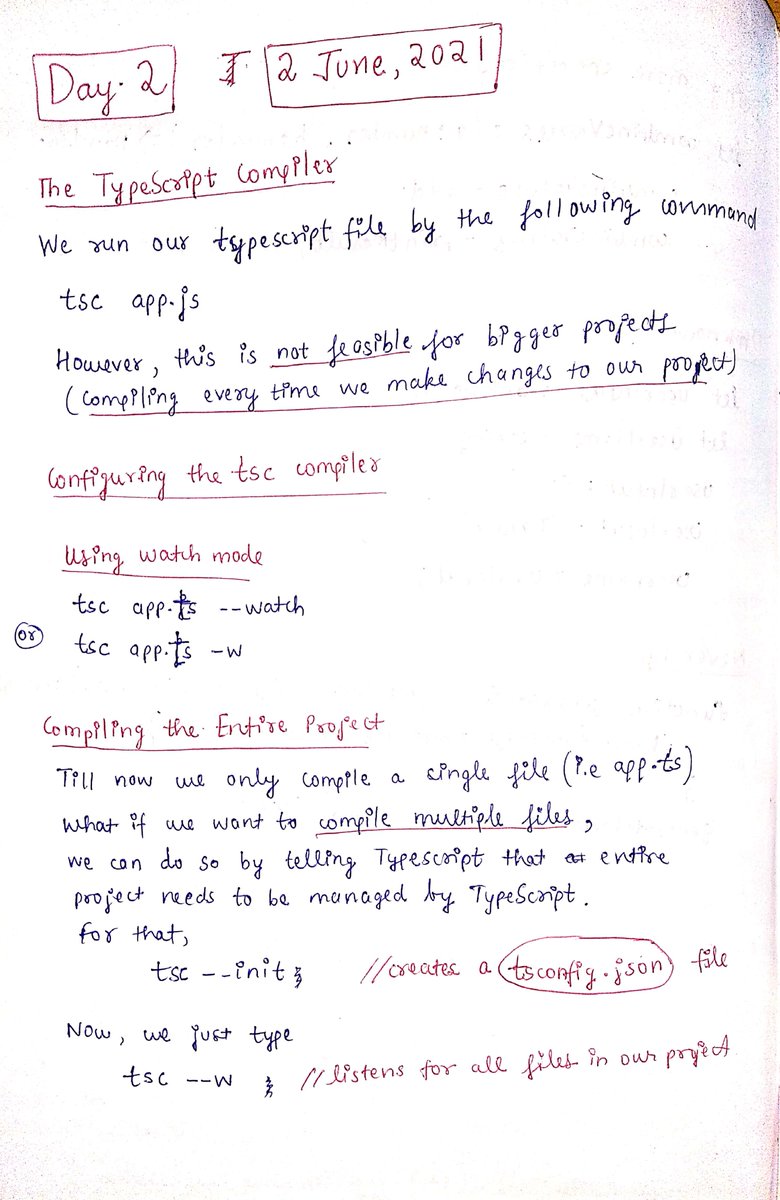 Day. 2 2 June, 2021
The TypeScript Compiler
We run our typescript file by the following command
tsc app.js
However, this is not feasible for bigger projects
(compiling every time we make changes to our project)
Configuring the tsc compiler
Using watch mode
tsc app.ts --watch
or tsc app.ts -w
Compiling the Entire Project
Till now we only compile a single file (i.e app.ts)
What if we want to compile multiple files,
we can do so by telling Typescript that entire
project needs to be managed by TypeScript.
for that,
tsc --init //creates a tsconfig.json file
Now, we just type
tsc --w //listens for all files in our project